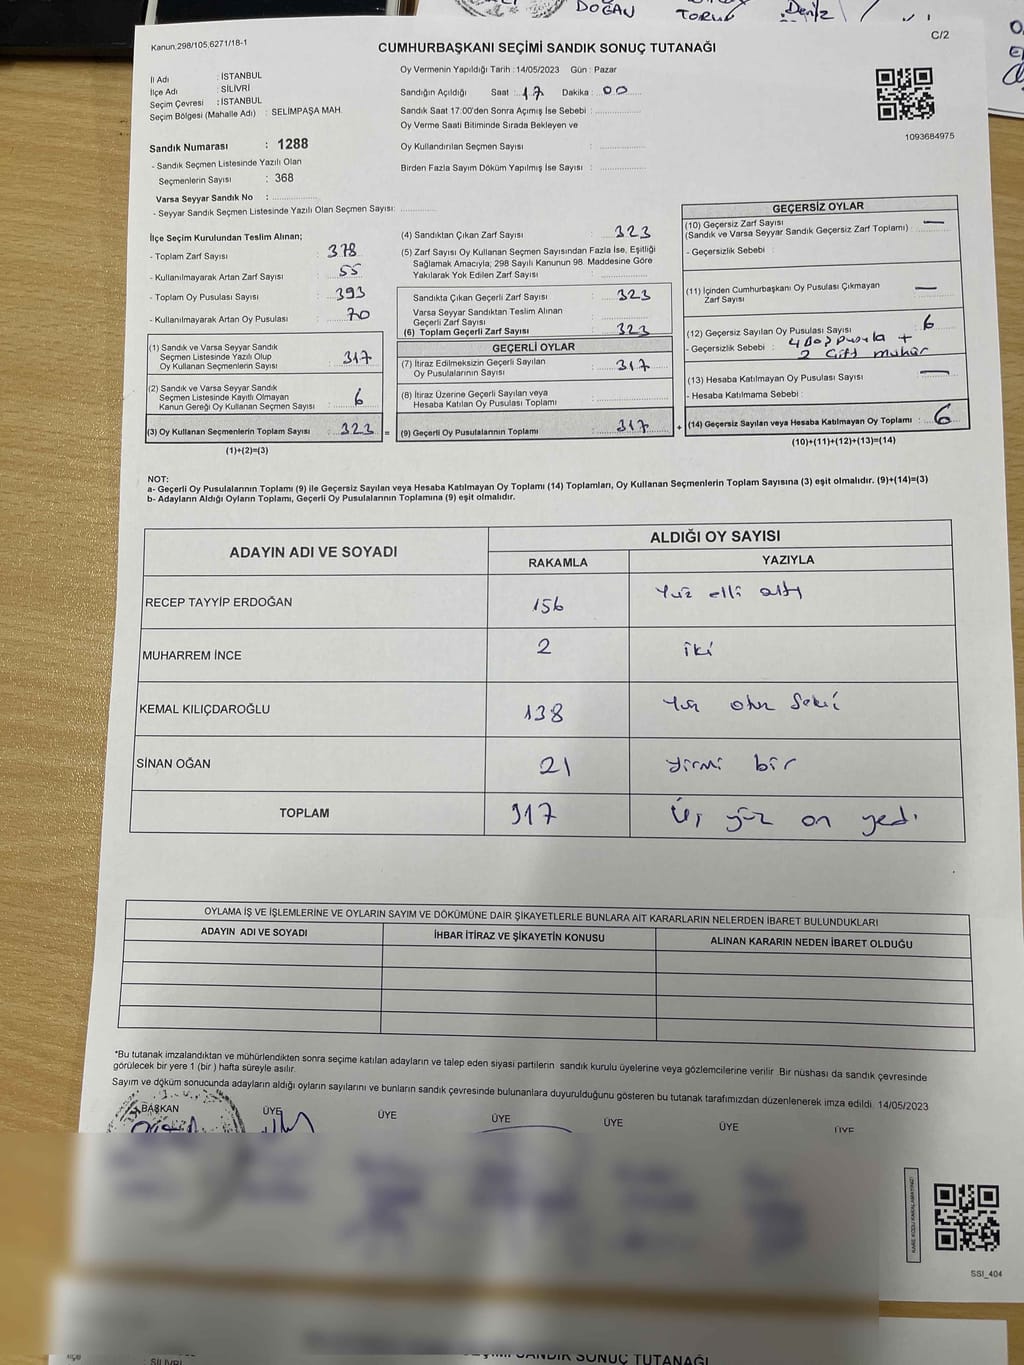 DOĞAN
TORUN
Deniz
Kanun,298/105,6271/18-1
C/2
CUMHURBAŞKANI SEÇİMİ SANDIK SONUÇ TUTANAĞI
İl Adı : İSTANBUL
İlçe Adı : SİLİVRİ
Seçim Çevresi : İSTANBUL
Seçim Bölgesi (Mahalle Adı) : SELİMPAŞA MAH.
Oy Vermenin Yapıldığı Tarih :14/05/2023 Gün : Pazar
Sandığın Açıldığı Saat : 17 Dakika : 00
Sandık Saat 17:00'den Sonra Açımış İse Sebebi :
Oy Verme Saati Bitiminde Sırada Bekleyen ve
Oy Kullandırılan Seçmen Sayısı :
Birden Fazla Sayım Döküm Yapılmış İse Sayısı :
1093684975
Sandık Numarası : 1288
- Sandık Seçmen Listesinde Yazılı Olan
Seçmenlerin Sayısı : 368
Varsa Seyyar Sandık No :
- Seyyar Sandık Seçmen Listesinde Yazılı Olan Seçmen Sayısı:
İlçe Seçim Kurulundan Teslim Alınan;
- Toplam Zarf Sayısı : 378
- Kullanılmayarak Artan Zarf Sayısı : 55
- Toplam Oy Pusulası Sayısı : 393
- Kullanılmayarak Artan Oy Pusulası : 70
(1) Sandık ve Varsa Seyyar Sandık
Seçmen Listesinde Yazılı Olup
Oy Kullanan Seçmenlerin Sayısı : 317
(2) Sandık ve Varsa Seyyar Sandık
Seçmen Listesinde Kayıtlı Olmayan
Kanun Gereği Oy Kullanan Seçmen Sayısı : 6
(3) Oy Kullanan Seçmenlerin Toplam Sayısı : 323 =
(1)+(2)=(3)
(4) Sandıktan Çıkan Zarf Sayısı : 323
(5) Zarf Sayısı Oy Kullanan Seçmen Sayısından Fazla İse, Eşitliği
Sağlamak Amacıyla; 298 Sayılı Kanunun 98. Maddesine Göre
Yakılarak Yok Edilen Zarf Sayısı :
Sandıkta Çıkan Geçerli Zarf Sayısı : 323
Varsa Seyyar Sandıktan Teslim Alınan
Geçerli Zarf Sayısı :
(6) Toplam Geçerli Zarf Sayısı : 323
GEÇERLİ OYLAR
(7) İtiraz Edilmeksizin Geçerli Sayılan
Oy Pusulalarının Sayısı : 317
(8) İtiraz Üzerine Geçerli Sayılan veya
Hesaba Katılan Oy Pusulası Toplamı :
(9) Geçerli Oy Pusulalarının Toplamı : 317 +
GEÇERSİZ OYLAR
(10) Geçersiz Zarf Sayısı
(Sandık ve Varsa Seyyar Sandık Geçersiz Zarf Toplamı) : —
- Geçersizlik Sebebi :
(11) İçinden Cumhurbaşkanı Oy Pusulası Çıkmayan
Zarf Sayısı : —
(12) Geçersiz Sayılan Oy Pusulası Sayısı : 6
- Geçersizlik Sebebi : 4 Boş pusula +
2 Çift mühür
(13) Hesaba Katılmayan Oy Pusulası Sayısı : —
- Hesaba Katılmama Sebebi :
(14) Geçersiz Sayılan veya Hesaba Katılmayan Oy Toplamı : 6
(10)+(11)+(12)+(13)=(14)
NOT:
a- Geçerli Oy Pusulalarının Toplamı (9) ile Geçersiz Sayılan veya Hesaba Katılmayan Oy Toplamı (14) Toplamları, Oy Kullanan Seçmenlerin Toplam Sayısına (3) eşit olmalıdır. (9)+(14)=(3)
b- Adayların Aldığı Oyların Toplamı, Geçerli Oy Pusulalarının Toplamına (9) eşit olmalıdır.
ADAYIN ADI VE SOYADI
ALDIĞI OY SAYISI
RAKAMLA YAZIYLA
RECEP TAYYİP ERDOĞAN 156 Yüz elli altı
MUHARREM İNCE 2 iki
KEMAL KILIÇDAROĞLU 138 Yüz otuz sekiz
SİNAN OĞAN 21 yirmi bir
TOPLAM 317 Üç yüz on yedi
OYLAMA İŞ VE İŞLEMLERİNE VE OYLARIN SAYIM VE DÖKÜMÜNE DAİR ŞİKAYETLERLE BUNLARA AİT KARARLARIN NELERDEN İBARET BULUNDUKLARI
ADAYIN ADI VE SOYADI İHBAR İTİRAZ VE ŞİKAYETİN KONUSU ALINAN KARARIN NEDEN İBARET OLDUĞU
*Bu tutanak imzalandıktan ve mühürlendikten sonra seçime katılan adayların ve talep eden siyasi partilerin sandık kurulu üyelerine veya gözlemcilerine verilir. Bir nüshası da sandık çevresinde
görülecek bir yere 1 (bir ) hafta süreyle asılır.
Sayım ve döküm sonucunda adayların aldığı oyların sayılarını ve bunların sandık çevresinde bulunanlara duyurulduğunu gösteren bu tutanak tarafımızdan düzenlenerek imza edildi. 14/05/2023
BAŞKAN ÜYE ÜYE ÜYE ÜYE ÜYE ÜYE
SSI_404
: SİLİVRİ
SEÇİMİ SANDIK SONUÇ TUTANAĞI